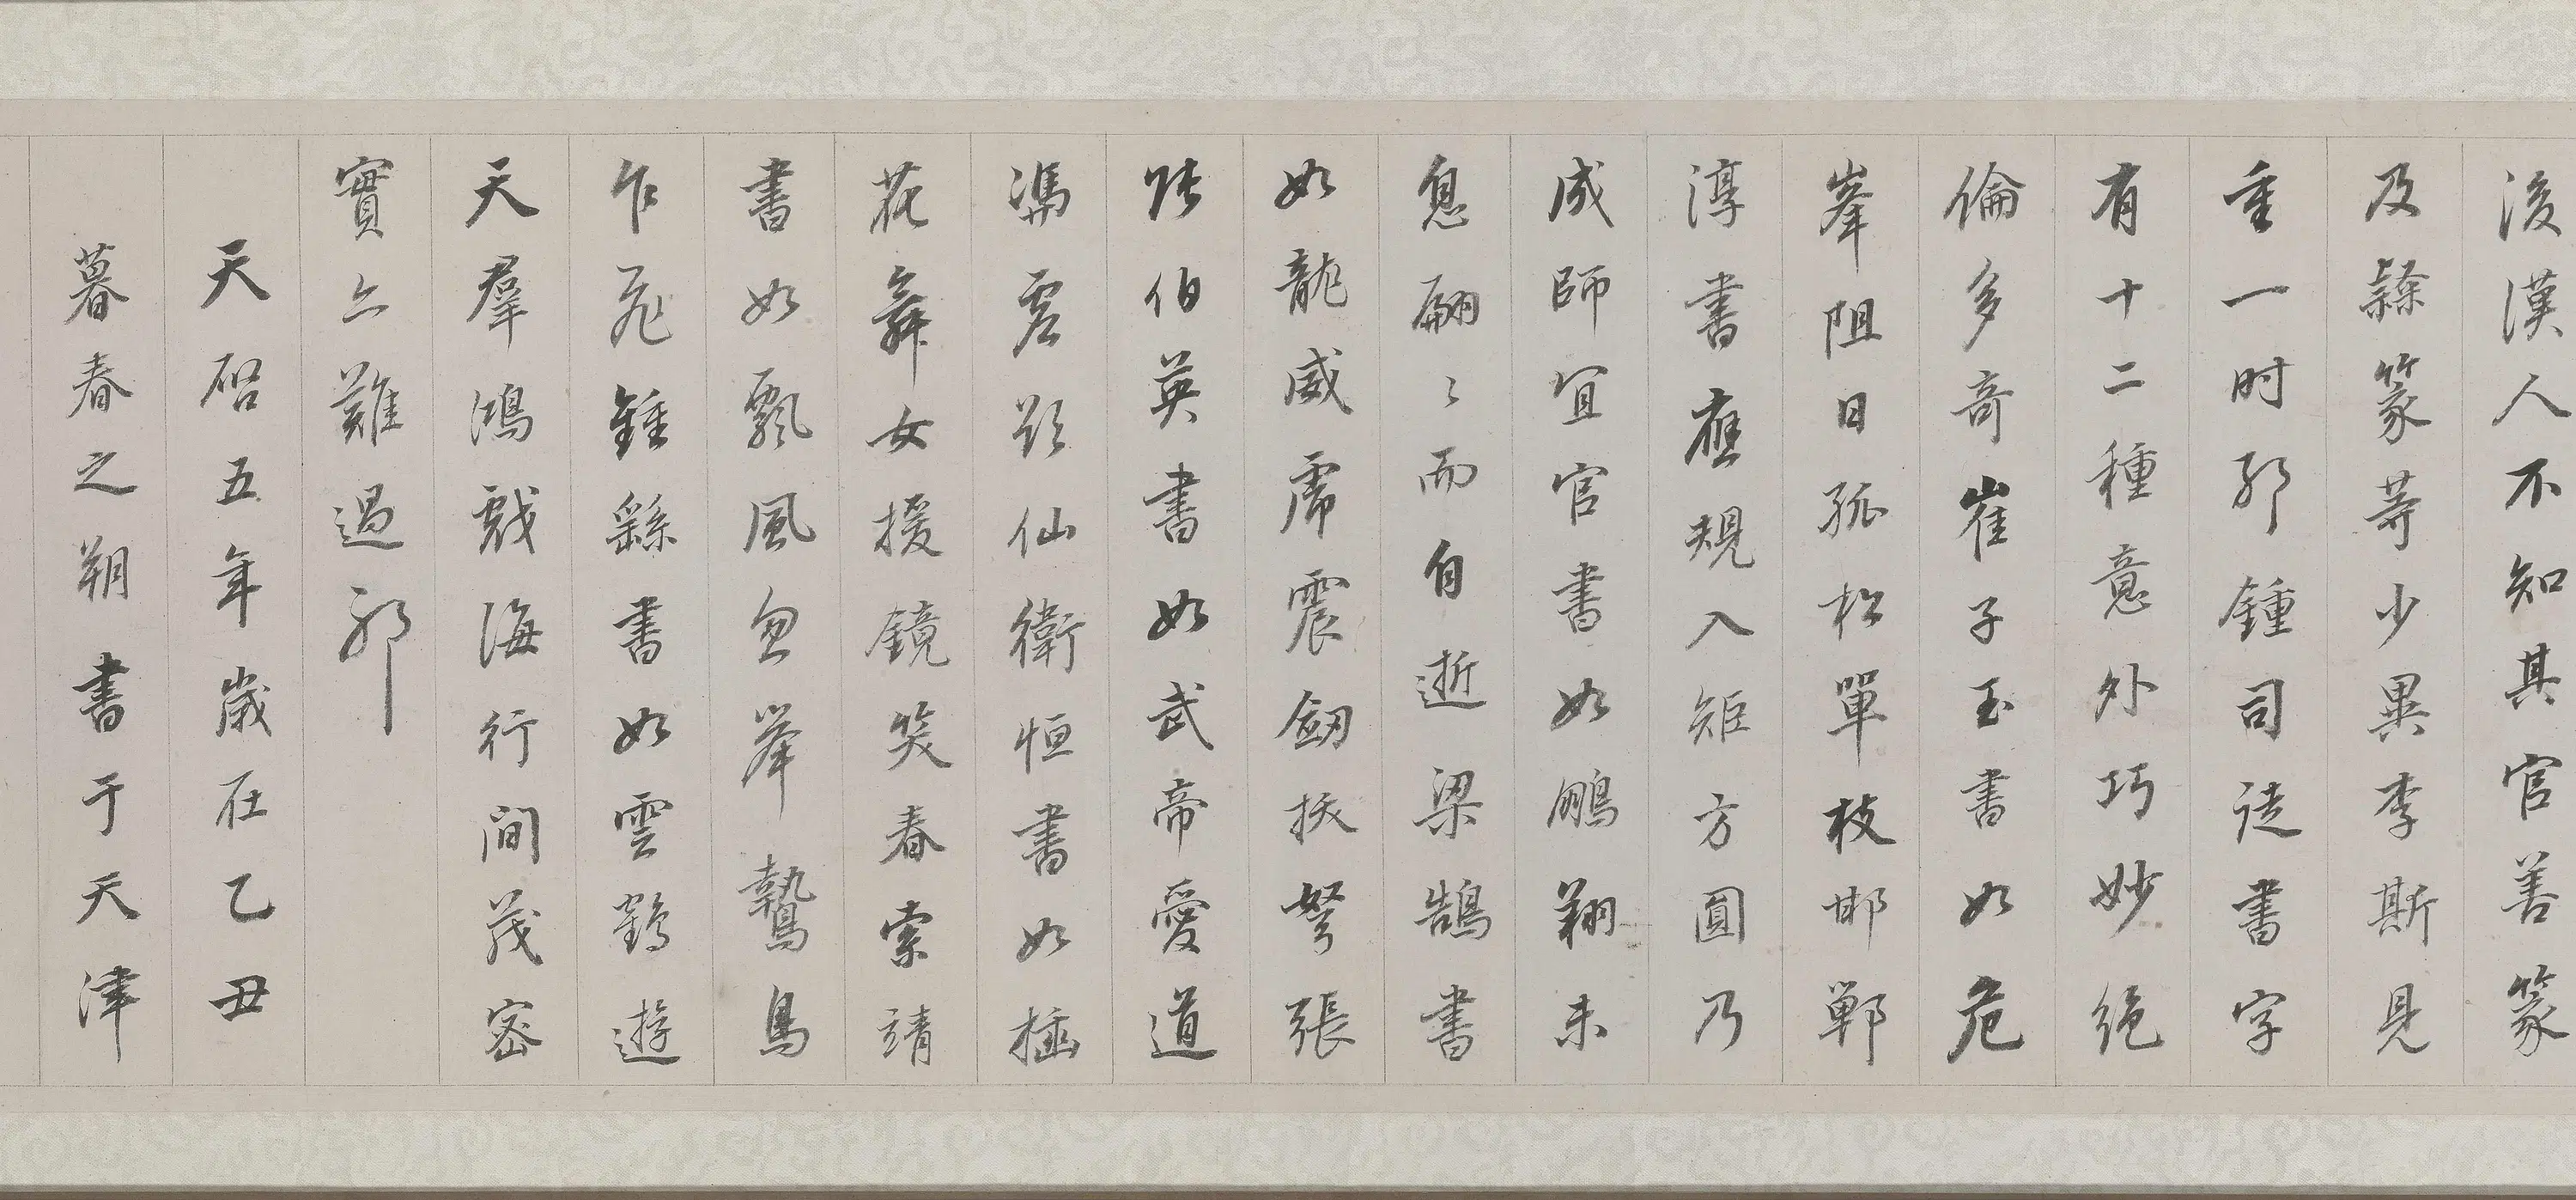 後漢人不知其官善篆
及隸篆等少異李斯見
重一时邪鍾司徒書字
有十二種意外巧妙絕
倫多奇崔子玉書如危
峯阻日孤松單枝邯鄲
淳書應規入矩方圓乃
成師宜官書如鵬翔未
息翩〻而自逝梁鵠書
如龍威虎震劔拔弩張
張伯英書如武帝愛道
馮虛欲仙衛恒書如插
花舞女援鏡笑春索靖
書如飄風忽舉鷙鳥
乍飛鍾繇書如雲鶴遊
天羣鴻戲海行間茂密
實亦難過邪
天啓五年歲在乙丑
暮春之朔書于天津